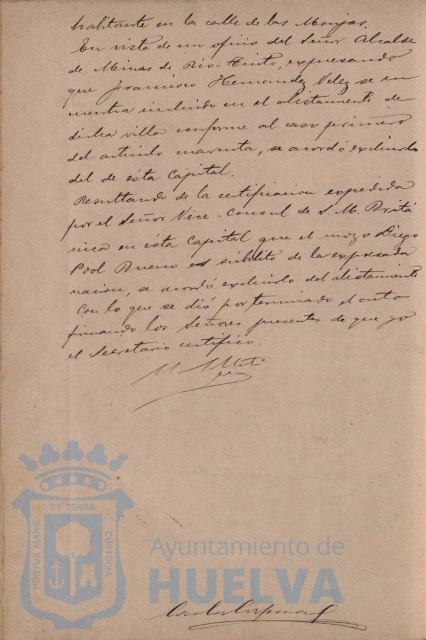 habitante en la calle de las Monjas.
En vista de un oficio del Señor Alcalde
de Minas de Rio-Tinto, expresando
que Francisco Hernandez Velez se en
cuentra incluido en el alistamiento de
dicha villa conforme al caso primero
del articulo cuarenta, se acordó excluirlo
del de esta Capital.
Resultando de la certificacion expedida
por el Señor Vice-Consul de S. M. Britá
nica en esta Capital que el mozo Diego
Pool Bueno es subdito de la expresada
nacion, se acordó excluirlo del alistamiento
Con lo que se dió por terminado el acto
firmando los Señores presentes de que yo
el Secretario certifico.
PORTUS MARIS
ET TERRÆ
CUSTODIA
Ayuntamiento de
HUELVA